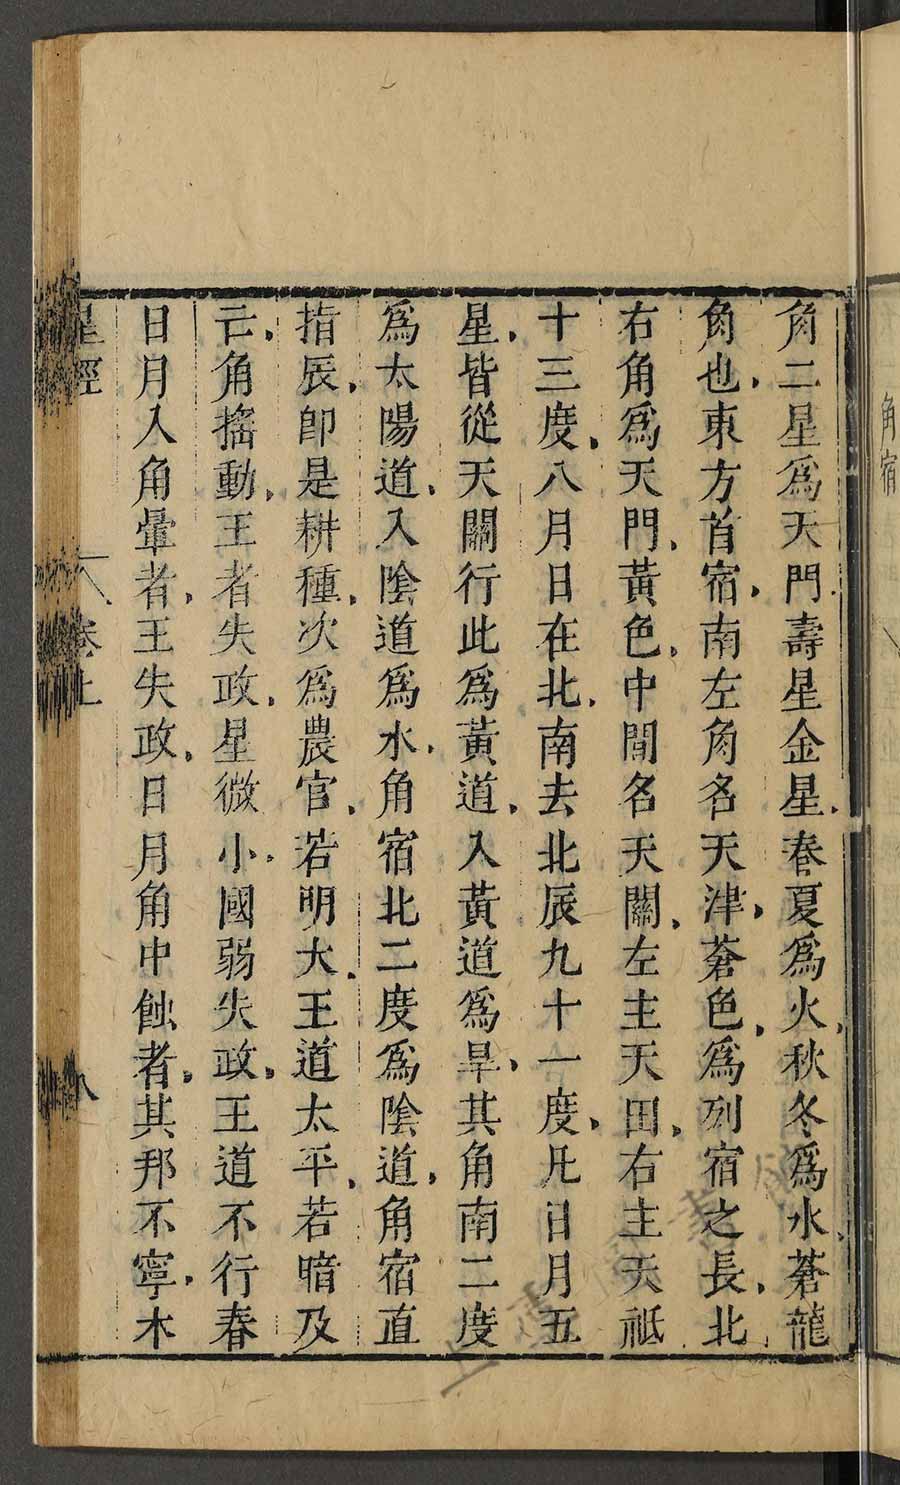 角宿
角二星為天門壽星金星春夏為火秋冬為水蒼龍
角也東方首宿南左角名天津蒼色為列宿之長北
右角為天門黃色中間名天關左主天田右主天祗
十三度八月日在北南去北辰九十一度凡日月五
星皆從天關行此為黃道入黃道為旱其角南二度
為太陽道入陰道為水角宿北二度為陰道角宿直
指辰卽是耕種次為農官若明大王道太平若暗及
亡角搖動王者失政星微小國弱失政王道不行春
日月入角暈者王失政日月角中蝕者其邦不寧木
星經 卷上 八